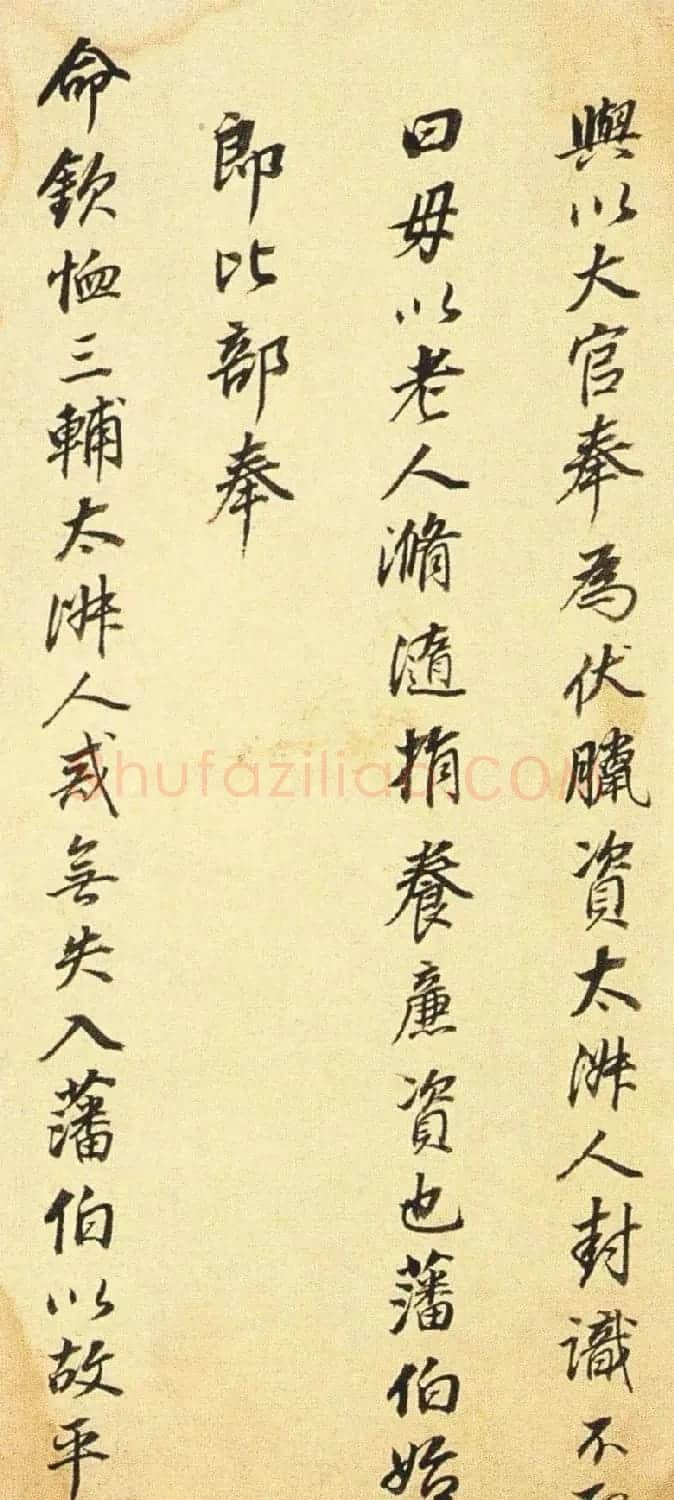 輿以大官奉為伏臘資太淑人封識不
曰毋以老人滫瀡捐養廉資也藩伯始
即比部奉
命欽恤三輔太淑人戒無失入藩伯以故平
shufaziliao.com